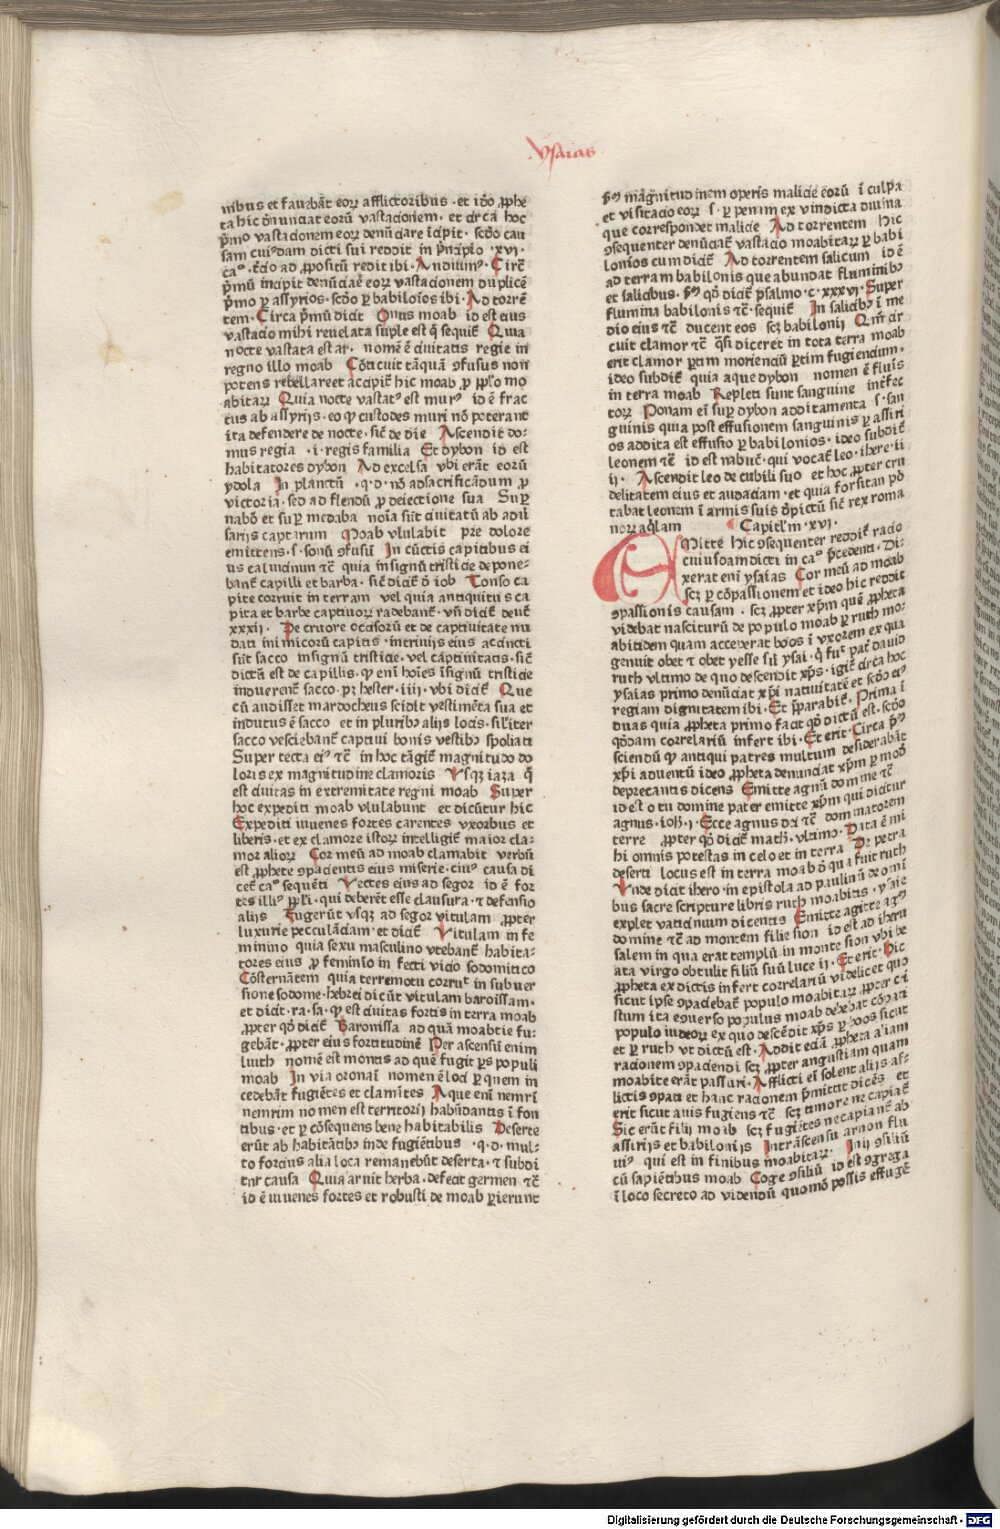 Ysaias
nibus et fauebāt eoꝝ afflictoribus · et iō ꝓphe
ta hic ꝺnunciat eorū vastacionem · et circa hoc
pͥmo vastacionem eorꝫ denūciare īcipit · scꝺo cau
sam cuiusdam dicti sui reddit in pͥncipio · xvi ·
caͦ · tͨio ad ꝓpositū redit ibi · Audiuimꝰ · Circa
pͥmū incipit denūciare eorꝫ vastacionem duplicē
pͥmo ꝑ assyrios · scꝺo ꝑ babiloīos ibi · Ad torrē
tem · Circa pͥmū dicit Onus moab id est eius
vastacio mihi reuelata suple est qͥ sequit᷑ Quia
nocte vastata est ar · nomē ē ciuitatis regie in
regno illo moab Cōticuit tāquā ꝯfusus non
potens rebellare et accipit᷑ hic moab ꝓ ppl̄o mo
abitarꝫ Quia nocte vastatꝰ est murꝰ id ē frac
tus ab assyrijs · eo ꝙ custodes muri nō poterant
ita defendere de nocte · sic̄ de die Ascendit do⸗
mus regia · i · regis familia Et dybon id est
habitatores dybon Ad excelsa vbi erāt eorū
ydola In planctū · q · d · nō ad sacrificādum ꝓ
victoria · sed ad flendū ꝓ deiectione sua Suꝑ
nabō et suꝑ medaba noīa sūt ciuitatū ab aduͥ
sarijs captarum Moab vlulabit pre dolore
emittens · s · sonū ꝯfusū In cūctis capitibus ei
us caluicium tc̄ quia in signū tristicie depone⸗
bant᷑ capilli et barba · sic̄ dicit᷑ ꝺ iob Tonso ca
pite corruit in terram vel quia antiquitus ca
pita et barbe captiuorꝫ radebant᷑ · vn̄ dicit᷑ deut᷑
xxxij · De cruore occisorū et de captiuitate nu
dati inimicorū capitis · in triuijs eius accincti
sūt sacco in signū tristicie · vel captiuitatis · sic̄
dictū est de capillis · ꝙ enī hoīes in signū tristicie
induerent᷑ sacco · pꝫ hester · iiij · vbi dicit᷑ Que
cū audisset mardocheus scidit vestimēta sua et
indutus ē sacco et in pluribꝰ alijs locis · sil̄iter
sacco vesciebant᷑ captiui bonis vestibꝰ spoliati
Super tecta eiꝰ tc̄ in hoc tāgit᷑ magnitudo do
loris ex magnitudine clamoris Vsqꝫ iaza qͥ
est ciuitas in extremitate regni moab Super
hoc expediti moab vlulabunt et dicūtur hic
Expediti iuuenes fortes carentes vxoribus et
liberis · et ex clamore istorꝫ intelligit᷑ maior cla⸗
mor aliorꝫ Cor meū ad moab clamabit verbū
est ꝓphete ꝯpacientis eius miserie · ciuꝰ causa di
cet᷑ caͦ sequēti Vectes eius ad segor id ē for
tes illiꝰ pp̄li · qui deberēt esse clausura · ⁊ defensio
alijs Fugerūt vsqꝫ ad segor vitulam ꝓpter
luxurie pecculāciam · et dicit᷑ Vitulam in fe
minino quia sexu masculino vtebant᷑ habita⸗
tores eius ꝓ feminīo in fecti vicio sodomitico
Cōsternātem quia terremotu corrut in subuer
sione sodome · hebrei dicūt vitulam baroissam ·
et dicit · ra · sa · ꝙ est ciuitas fortis in terra moab
ꝓpter qꝺ dicit᷑ Baronissa ad quā moabite fu⸗
gebāt · ꝓpter eius fortitudinē Per ascensū enim
luith nomē est montis ad quē fugit ꝑs populi
moab In via oronaī nomen ē loci ꝑ quem in
cedebāt fugiētes et clamātes Aque enī nemrī
nemrim nomen est territorij habūdantis ī fon
tibus · et ꝑ cōsequens bene habitabilis Deserte
erūt ab habitātibꝰ inde fugiētibus · q · d · mul⸗
to forcius alia loca remanebūt deserta · ⁊ subdi
tnr causa Quia aruit herba · defecit germen tc̄
id ē iuuenes fortes et robusti de moab ꝑierunt
sꝫ magnitudinem operis malicie eorū ī culpa
et visitacio eorꝫ s · ꝑ penam ex vindicta diuina
que correspondet malicie Ad torrentem hic
ꝯsequenter denūciat᷑ vastacio moabitarꝫ ꝑ babi
lonios cum dicit᷑ Ad torrentem salicum id ē
ad terram babilonis que abundat fluminibꝰ
et salicibus · sꝫ qꝺ dicit᷑ psalmo · c · xxxvi · Super
flumina babilonis tc̄ · sequit᷑ In salicibꝰ ī me
dio eius tc̄ ducent eos scꝫ babilonij Qm̄ cir
cuit clamor tc̄ qͣsi diceret in tota terra moab
erit clamor ꝑtim moriencū ꝑtim fugiencium ·
ideo subdit᷑ quia aque dybon nomen ē fluīs
in terra moab Repleti sunt sanguine int̄fec
torꝫ Ponam eī suꝑ dybon additamenta s · san
guinis quia post effusionem sanguinis ꝑ assiri
os addita est effusio ꝑ babilonios · ideo subdit᷑
leonem tc̄ id est nabuc̄ · qui vocat᷑ leo · ihere · ii
ij · Ascendit leo de cubili suo et hoc ꝓpter cru
delitatem eius et audaciam · et quia forsitan poꝛ
tabat leonem ī armis suis ꝺpictū sic̄ rex roma
norꝫ aqͥlam Capitl̄m · xvi ·
Emitte hic ꝯsequenter reddit᷑ racio
cuiusdam dicti in caͦ pͥcedenti · Di⸗
xerat enī ysaias Cor meū ad moab
scꝫ ꝑ cōpassionem et ideo hic reddit
ꝯpassionis causam · scꝫ ꝓpter xp̄m quē ꝓpheta
videbat nasciturū de populo moab ꝑ ruth mo⸗
abitidem quam acceperat boos ī vxorem ex qua
genuit obet ⁊ obet yesse siū ysai · qͥ fuͭ pat̄ dauid
ruth vltimo de quo descendit xp̄s · igit᷑ circa hoc
ysaias primo denūciat xp̄i natiuitatē et scꝺo eiꝰ
regiam dignitatem ibi · Et pͥparabit᷑ · Prima ī
duas quia ꝓpheta primo facit qꝺ dictū est · scꝺo
qꝺdam correlariū infert ibi · Et erit · Circa pͥmͫ
sciendū ꝙ antiqui patres multum desiderabāt
xp̄i aduentū ideo ꝓpheta denunciat xp̄m ꝑ modū
deprecantis dicens Emitte agnū domine tc̄
id est o tu domine pater emitte xp̄m qui dicitur
agnus · ioh̄ · i · Ecce agnus dei tc̄ dominatorem
terre ꝓpter qꝺ dicit᷑ math · vltimo · Data ē mi
hi omnis potestas in celo et in terra De petra
deserti locus est in terra moab ꝺ qua fuit ruth
Vnde dicit ihero · in epistola ad paulinū de omī
bus sacre scripture libris ruth moabitis · ysaie
explet vaticinium dicentis Emitte agnū
domine tc̄ ad montem filie sion id est ad iheru
salem in qua erat templū in monte sion vbi be
ata virgo obtulit filiū suū luce ij · Et erit · Hic
ꝓpheta ex dictis infert correlariū videlicet quo
sicut ipse ꝯpaciebat᷑ populo moabitarꝫ ꝓpter cri
stum ita eꝯuerso populus moab debebat cōpati
populo iudeorꝫ ex quo descēdit xp̄s ꝑ boos sicut
et ꝑ ruth vt dictū est · Addit eciā ꝓpheta aliam
racionem ꝯpaciendi scꝫ ꝓpter angustiam quam
moabite erāt passuri · Afflicti eī solent alijs af⸗
flictis ꝯpati et hanc racionem pͥmittit dicēs et
erit sicut auis fugiens tc̄ scꝫ timore ne capiat᷑
Sic erūt filij moab scꝫ fugiētes ne capiant᷑ ab
assirijs et babilonijs In trāscensu arnon flu
uiꝰ qui est in finibus moabitarꝫ · Ini ꝯsiliū
cū sapiētibus moab Coge ꝯsiliū id est ꝯgrega
ī loco secreto ad videndū quomō possis effugē
Digitalisierung gefördert durch die Deutsche Forschungsgemeinschaft - DFG